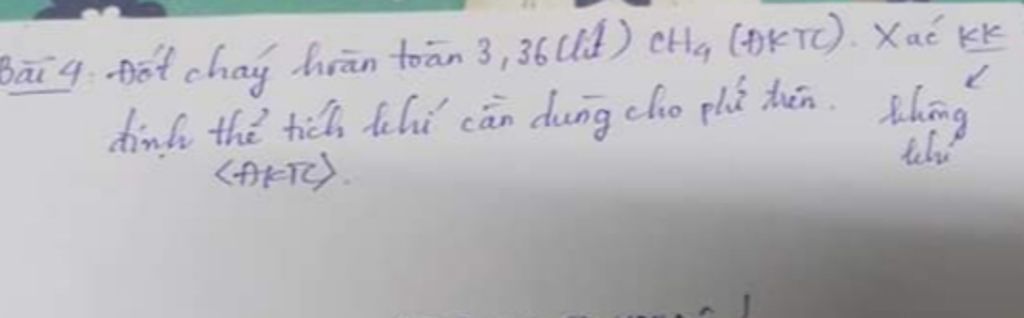 Bài 4: Đốt cháy hoàn toàn 3,36 (lít) CH4 (ĐKTC). Xác KK
định thể tích khí cần dùng cho phứ trên. không
<ĐKTC>. khí